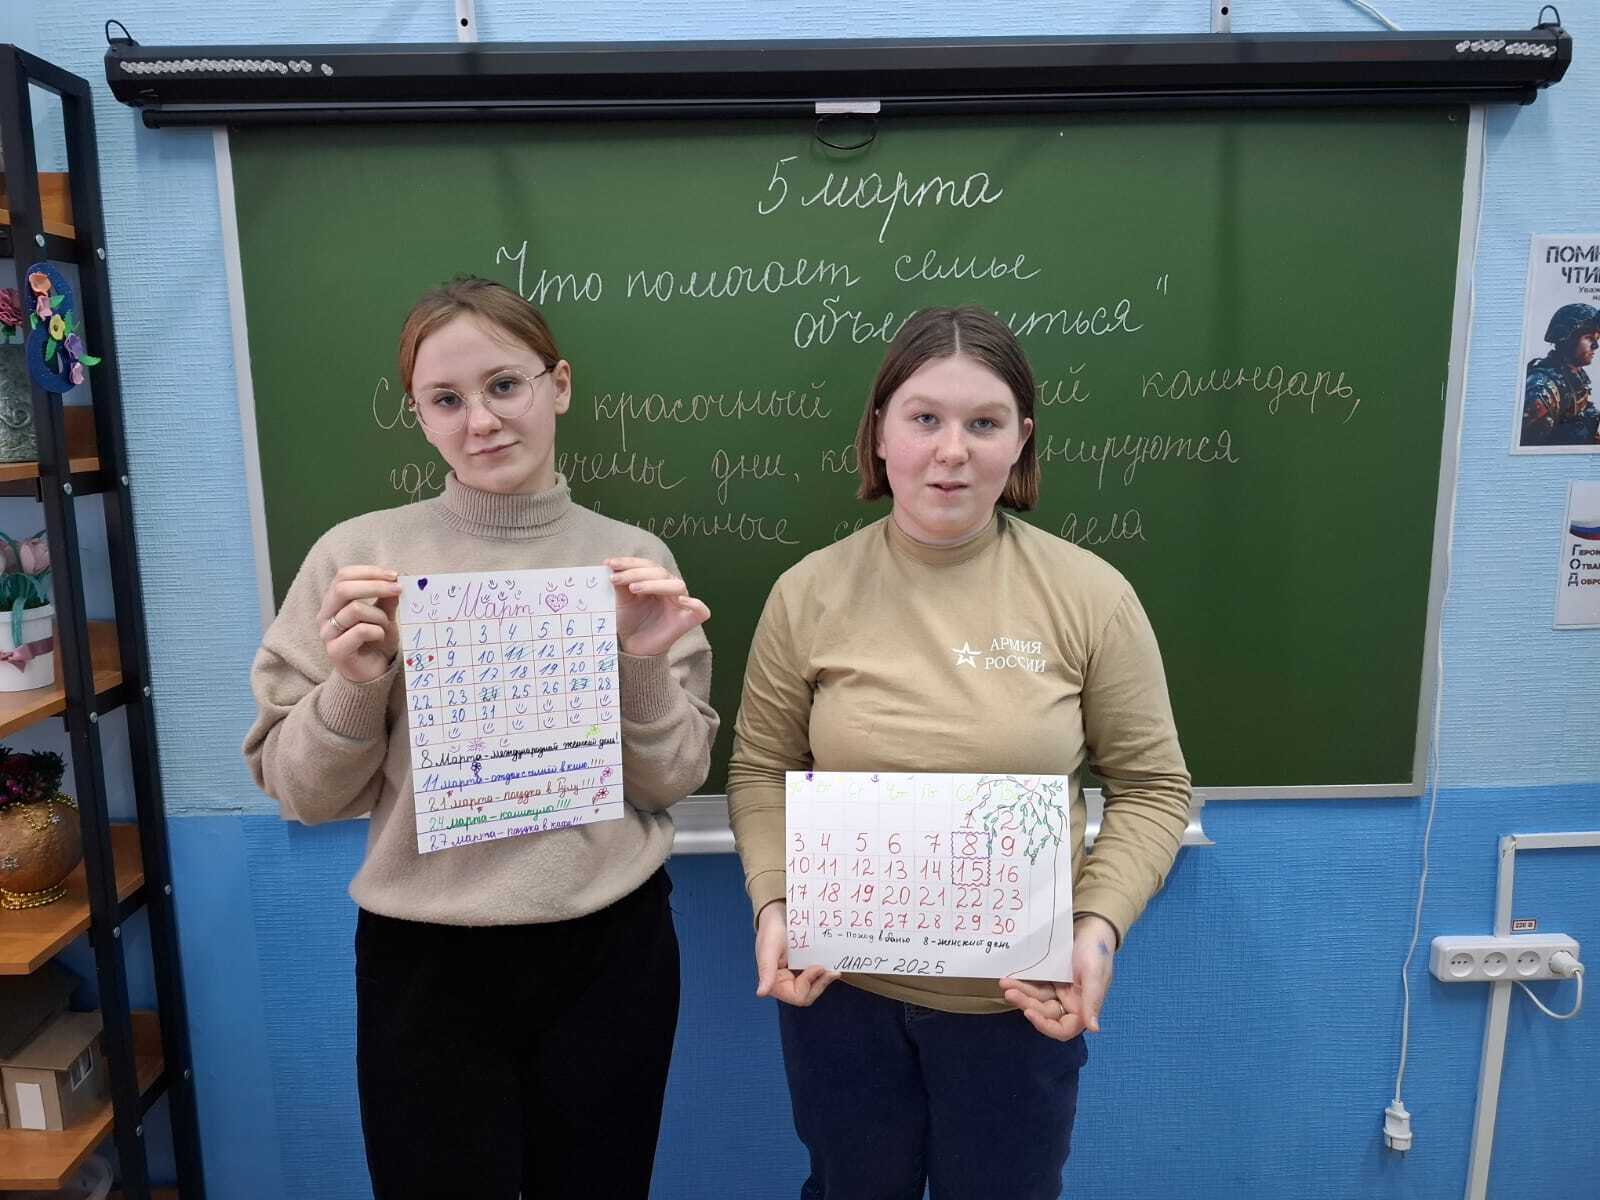 5 марта
Что помогает семье
"
красочный календарь,
где дни,
дела
Март!
1 2 3 4 5 6 7
8 9 10 11 12 13 14
15 16 17 18 19 20 21
22 23 24 25 26 27 28
29 30 31
8 Марта - международный женский день!
11 марта - отдых с семьёй в кино!!!!
21 марта - поездка в !!!
24 марта - каникулы!!!!
27 марта - поездка в кафе!!!
АРМИЯ
РОССИИ
Вт Ср Чт Пт Сб Вс
1 2
3 4 5 6 7 8 9
10 11 12 13 14 15 16
17 18 19 20 21 22 23
24 25 26 27 28 29 30
31 15 - Поход в баню 8 - женский день
МАРТ 2025
220 В